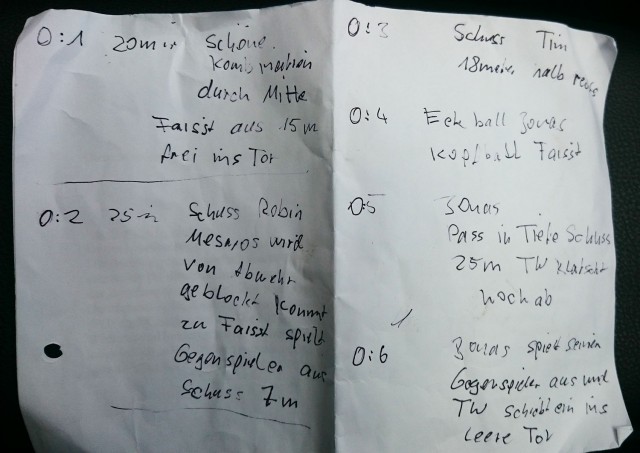 0:1 20min Schöne
Kombination
durch Mitte
Faisst aus 15m
frei ins Tor
0:2 25in Schuss Robin
Mesaros wird
von Abwehr
geblockt kommt
zu Faisst spielt
Gegenspieler aus
Schuss 7m
0:3 Schuss Tim
18meter halb rechts
0:4 Eckball Jonas
Kopfball Faisst
0:5 Jonas
Pass in Tiefe Schuss
25m TW klatscht
hoch ab
0:6 Jonas spielt seinen
Gegenspieler aus und
TW schiebt ein ins
leere Tor